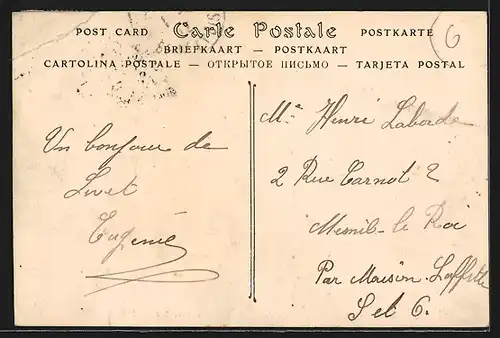 POST CARD Carte Postale POSTKARTE
BRIEFKAART — POSTKAART
CARTOLINA POSTALE — ОТКРЫТОЕ ПИСЬМО — TARJETA POSTAL
6
Un bonjour de
Livet
Eugénie
Mr Henri Laborde
2 Rue Carnot 2
Mesnil-le Roi
Par Maison-Laffitte
S et O.